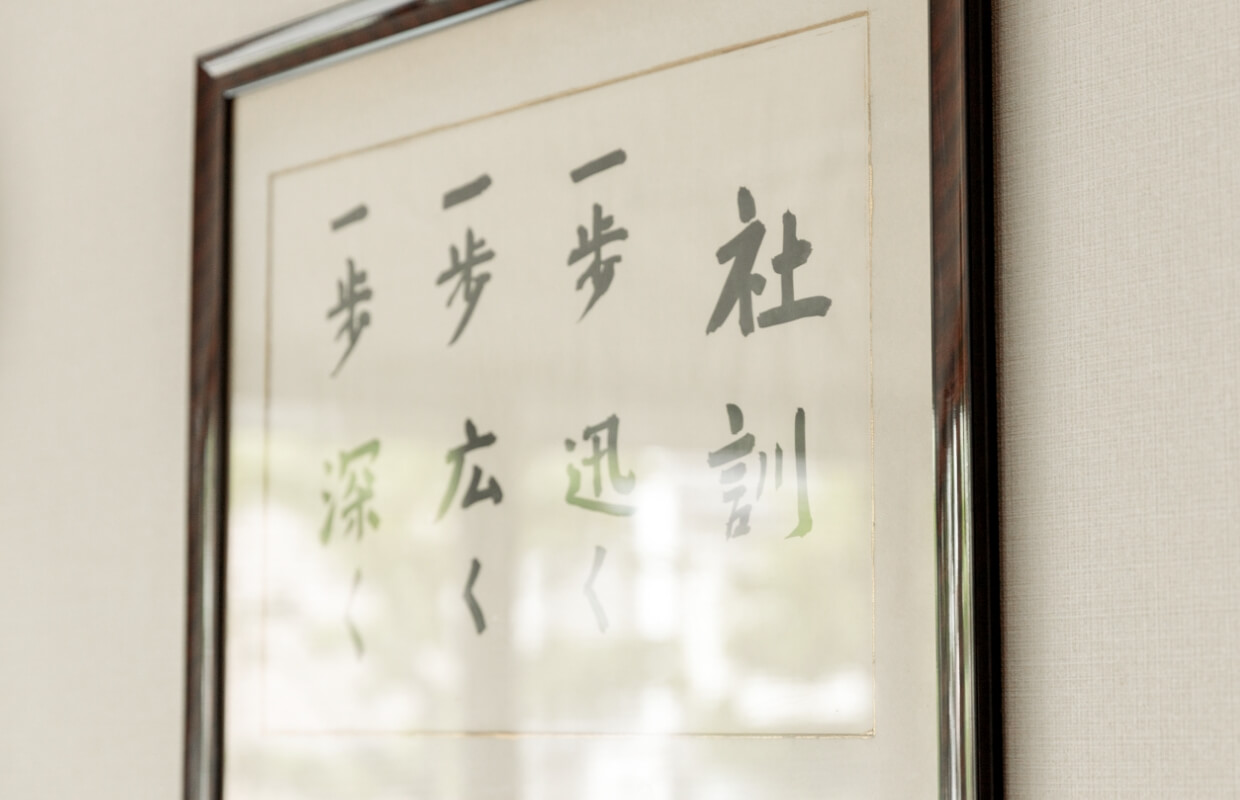 社訓
一歩迅く
一歩広く
一歩深く